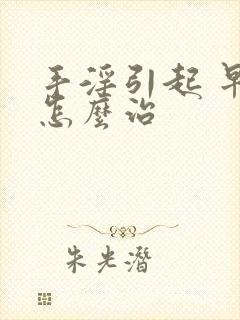 手淫引起早
怎麼治
朱光潛